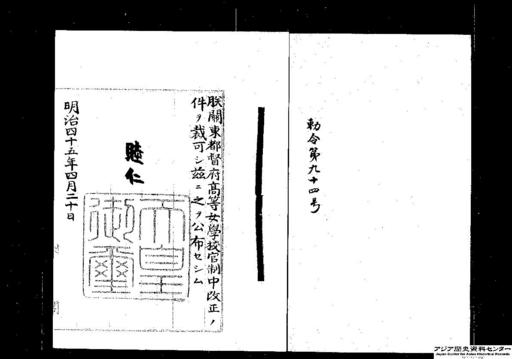 勅令第九十四号
朕關東都督府高等女學校官制中改正ノ
件ヲ裁可シ茲ニ之ヲ公布セシム
睦仁
天皇
御璽
明治四十五年四月二十日
アジア歴史資料センター
Japan Center for Asian Historical Records